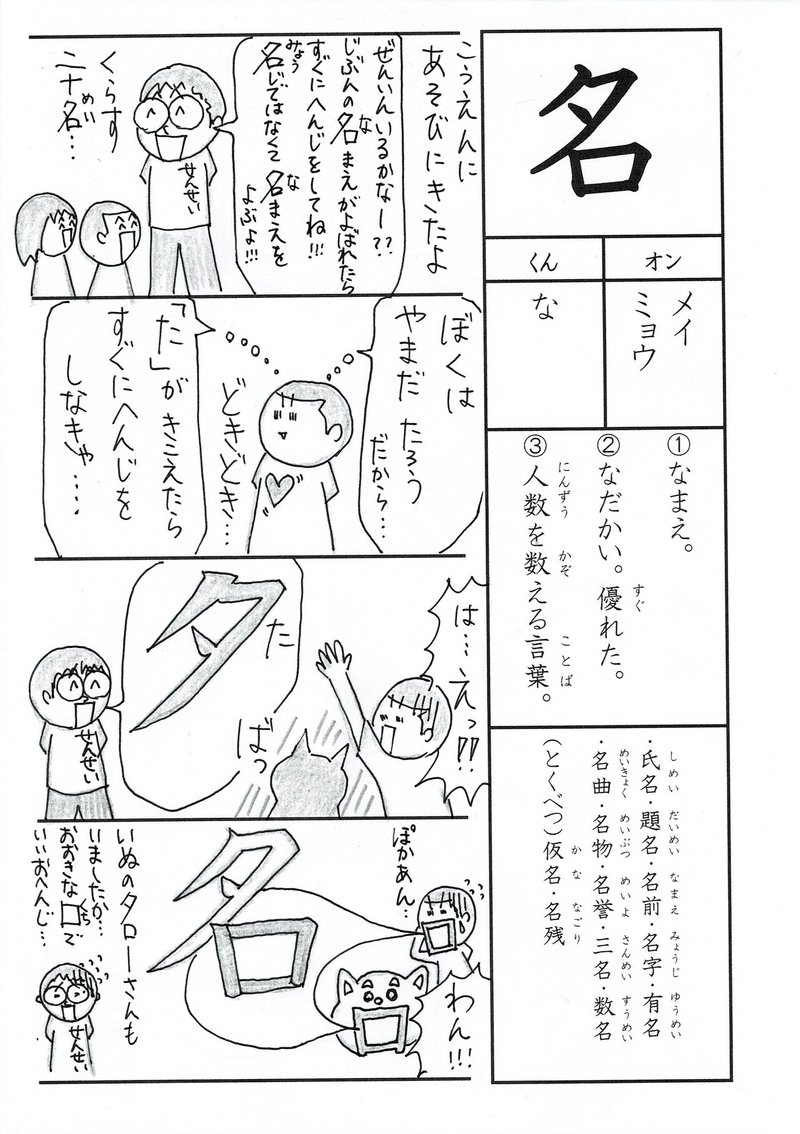 名
オン
くん
メイ
ミョウ
な
①なまえ。
②なだかい。優れた。
すぐ
③人数を数える言葉。
にんずう かぞ ことば
・氏名・題名・名前・名字・有名
しめい だいめい なまえ みょうじ ゆうめい
・名曲・名物・名誉・三名・数名
めいきょく めいぶつ めいよ さんめい すうめい
(とくべつ)仮名・名残
かな なごり
こうえんに
あそびにきたよ
ぜんいんいるかなー??
じぶんの名まえがよばれたら
な
すぐにへんじをしてね!!!
名じではなくて名まえを
みょう な
よぶよ!!!
せんせい
くらす
二十名…
めい
ぼくは
やまだ たろう
だから…
どきどき…
「た」がきこえたら
すぐにへんじを
しなきゃ…
は…えっ!!
た
タ
ばっ
せんせい
ぽかあん…
わん!!!
名
いぬのタローさんも
いましたか…
おおきな口で
くち
いいおへんじ…
せんせい